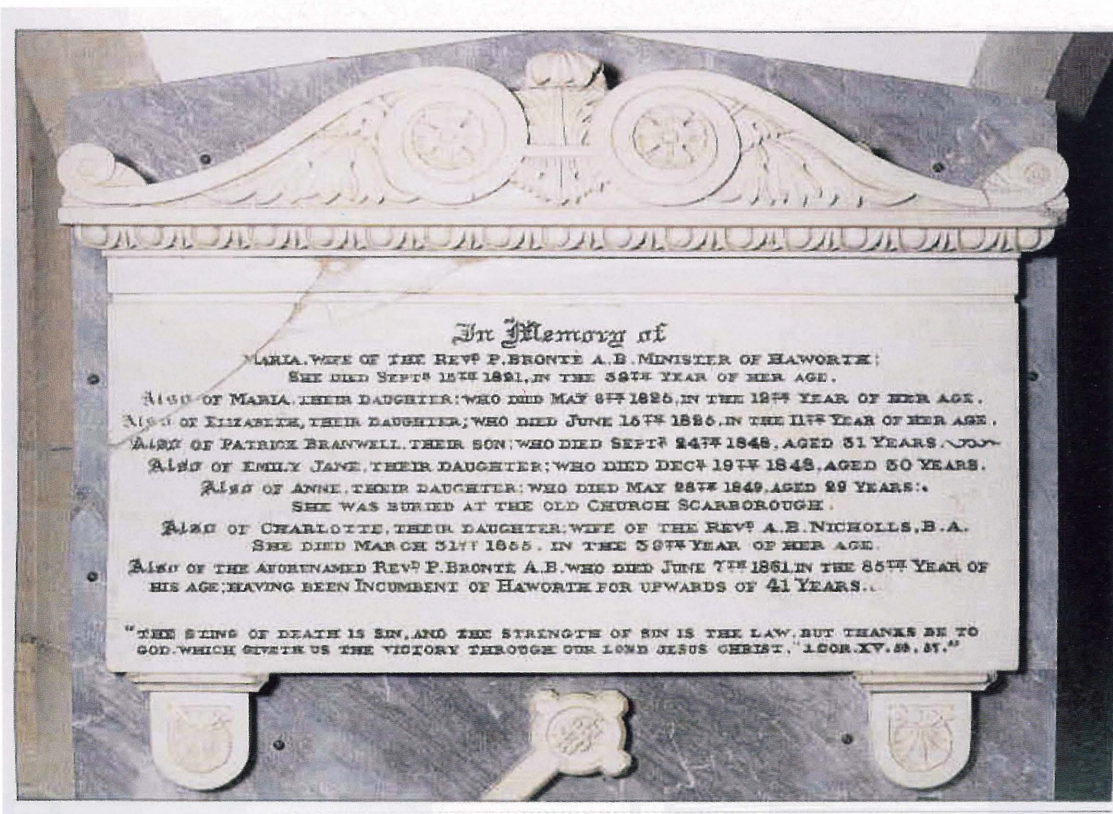 In Memory of
MARIA, WIFE OF THE REVD P. BRONTË A.B. MINISTER OF HAWORTH;
SHE DIED SEPTR 15TH 1821, IN THE 39TH YEAR OF HER AGE.
Also OF MARIA, THEIR DAUGHTER; WHO DIED MAY 6TH 1825, IN THE 12TH YEAR OF HER AGE.
Also OF ELIZABETH, THEIR DAUGHTER; WHO DIED JUNE 15TH 1825, IN THE 11TH YEAR OF HER AGE.
Also OF PATRICK BRANWELL, THEIR SON; WHO DIED SEPTR 24TH 1848, AGED 31 YEARS.
Also OF EMILY JANE, THEIR DAUGHTER; WHO DIED DECR 19TH 1848, AGED 30 YEARS.
Also OF ANNE, THEIR DAUGHTER; WHO DIED MAY 28TH 1849, AGED 29 YEARS:.
SHE WAS BURIED AT THE OLD CHURCH SCARBOROUGH.
Also OF CHARLOTTE, THEIR DAUGHTER; WIFE OF THE REVD A.B. NICHOLLS, B.A.
SHE DIED MARCH 31ST 1855, IN THE 39TH YEAR OF HER AGE.
Also OF THE AFORENAMED REVD P. BRONTË A.B. WHO DIED JUNE 7TH 1861, IN THE 85TH YEAR OF
HIS AGE; HAVING BEEN INCUMBENT OF HAWORTH FOR UPWARDS OF 41 YEARS..
"THE STING OF DEATH IS SIN, AND THE STRENGTH OF SIN IS THE LAW, BUT THANKS BE TO
GOD, WHICH GIVETH US THE VICTORY THROUGH OUR LORD JESUS CHRIST." 1. COR. XV. 56, 57."